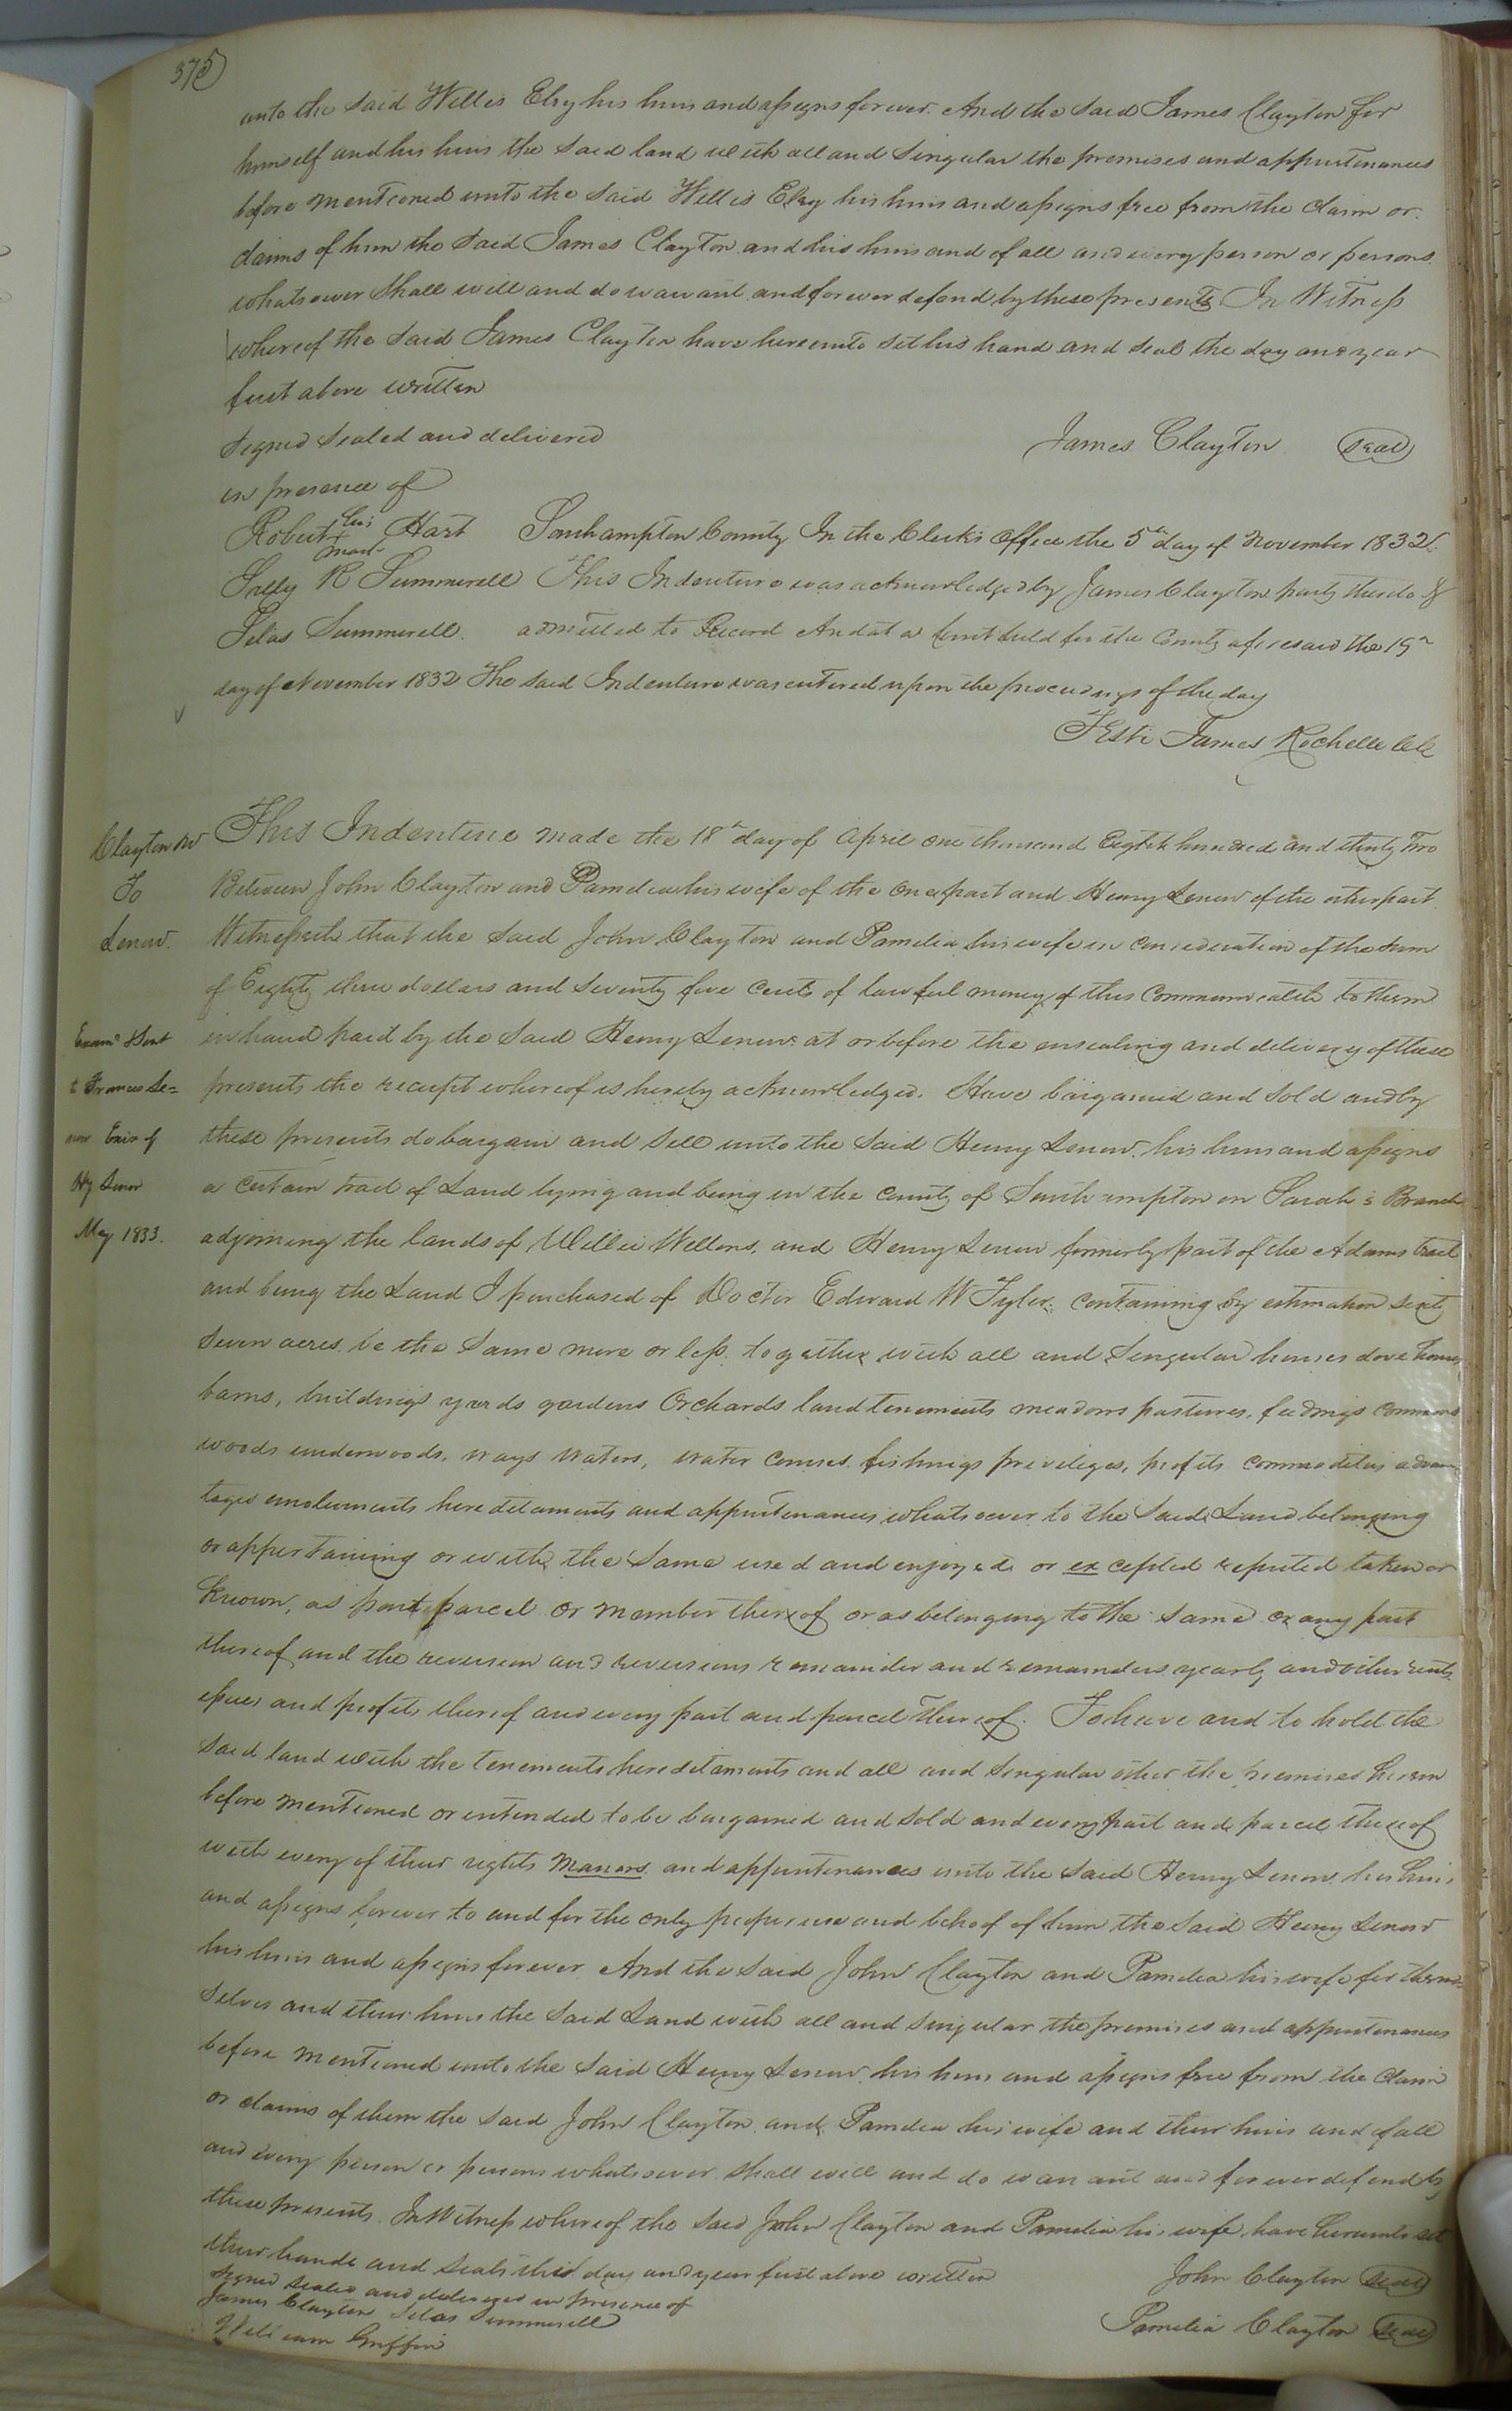 375
unto the said Willis Eley his heirs and assigns forever. And the said James Clayton for
himself and his heirs the said land with all and Singular the premises and appurtenances
before mentioned unto the said Willis Eley his heirs and assigns free from the claim or
claims of him the said James Clayton and his heirs and of all and every person or persons
whatsoever shall will and do warrant and forever defend by these presents In Witness
whereof the said James Clayton have hereunto set his hand and seal the day and year
first above written
Signed Sealed and delivered
James Clayton seal
in presence of
Robert his mark Hart Southampton County In the Clerk's Office the 5th day of November 1832.
R Summerell This Indenture was acknowledged by James Clayton party thereto &
Silas Summerell. admitted to Record And at a Court held for the County aforesaid the 19th
day of November 1832 The said Indenture was entered upon the proceedings of the day
Teste James Rochelle
Clayton
To
Lenow.
This Indenture made the 18th day of April one thousand Eight hundred and thirty two
Between John Clayton and Pamelia his wife of the one part and Henry Lenow of the other part
Witnesseth that the said John Clayton and Pamelia his wife in consideration of the sum
of Eighty three dollars and seventy five cents of lawful money of this Commonwealth to them
in hand paid by the said Henry Lenow at or before the ensealing and delivery of these
Exam'd & Sent
to Frances Le=
now of
Hy Lenow
May 1833.
presents the receipt whereof is hereby acknowledged. Have bargained and sold and by
these presents do bargain and sell unto the said Henry Lenow his heirs and assigns
a certain tract of Land lying and being in the county of Southampton on Sarah's Branch
adjoining the lands of Willie Wellons, and Henry Lenow formerly part of the Adams tract
and being the Land I purchased of Doctor Edward W Tyler, containing by estimation sixty
seven acres be the same more or less together with all and Singular houses dove houses
barns, buildings yards gardens Orchards land tenements meadows pastures, feedings commons
woods underwoods, ways waters, water courses fishings privileges, profits commodities advan
tages emoluments hereditaments and appurtenances whatsoever to the said Land belonging
or appertaining or with the same used and enjoyed or excepted reputed taken or
known, as part parcel or member thereof or as belonging to the same or any part
thereof and the reversion and reversions remainder and remainders yearly and other rents
issues and profits thereof and every part and parcel thereof. To have and to hold the
said land with the tenements hereditaments and all and singular other the premises herein
before mentioned or intended to be bargained and sold and every part and parcel thereof
with every of their rights manors and appurtenances unto the said Henry Lenow his heirs
and assigns forever to and for the only proper use and behoof of him the said Henry Lenow
his heirs and assigns forever And the said John Clayton and Pamelia his wife for them=
selves and their heirs the said Land with all and singular the premises and appurtenances
before mentioned unto the said Henry Lenow his heirs and assigns free from the claim
or claims of them the said John Clayton and Pamelia his wife and their heirs and of all
and every person or persons whatsoever shall will and do warrant and forever defend by
these presents. In Witness whereof the said John Clayton and Pamelia his wife have hereunto set
their hands and seals this day and year first above written
John Clayton seal
Signed Sealed and delivered in presence of
James Clayton Silas Summerell
Pamelia Clayton seal
William Griffin